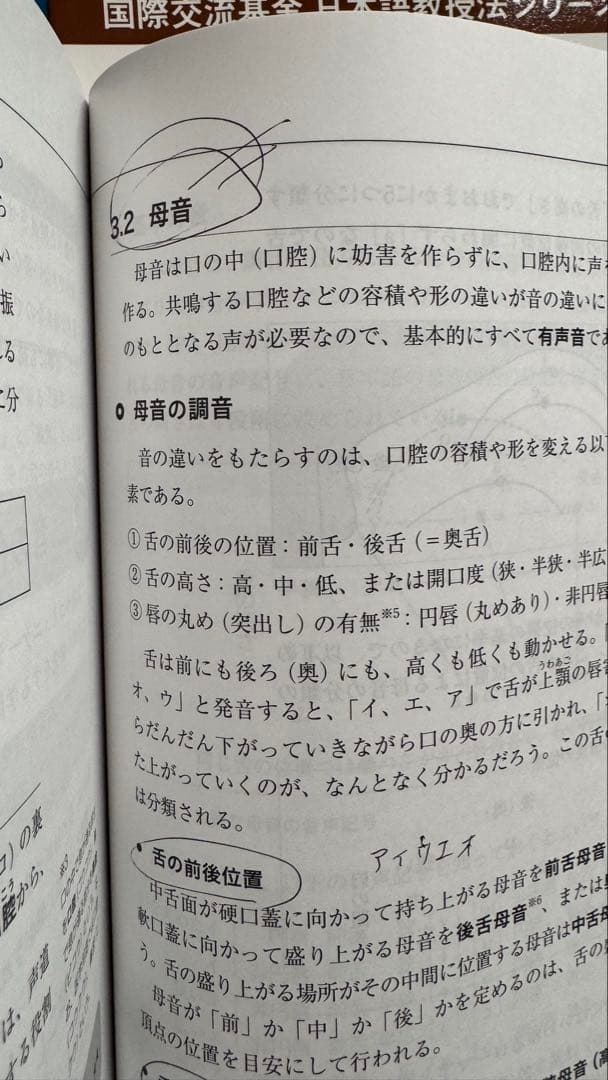 国際交流基金 日本語教授法シリーズ
3.2 母音
母音は口の中（口腔）に妨害を作らずに、口腔内に声
作る。共鳴する口腔などの容積や形の違いが音の違いに
のもととなる声が必要なので、基本的にすべて有声音であ
母音の調音
音の違いをもたらすのは、口腔の容積や形を変える以下
素である。
①舌の前後の位置：前舌・後舌（＝奥舌）
②舌の高さ：高・中・低、または開口度（狭・半狭・半広
③唇の丸め（突出し）の有無※5：円唇（丸めあり）・非円唇
舌は前にも後ろ（奥）にも、高くも低くも動かせる。「
オ、ウ」と発音すると、「イ、エ、ア」で舌が上顎の唇
うわあご
らだんだん下がっていきながら口の奥の方に引かれ、「
た上がっていくのが、なんとなく分かるだろう。この舌の
は分類される。
アイウエオ
舌の前後位置
中舌面が硬口蓋に向かって持ち上がる母音を前舌母音
軟口蓋に向かって盛り上がる母音を後舌母音※6、または
う。舌の盛り上がる場所がその中間に位置する母音は中舌母
母音が「前」か「中」か「後」かを定めるのは、舌の
頂点の位置を目安にして行われる。
振
る
二分
の裏
こう
腔から、
※3
は、声道
する役割
母音（高